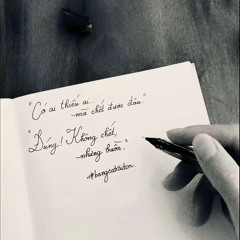 "Có ai thiếu ai...
mà chết được đâu."
"Đúng! Không chết,
nhưng buồn."